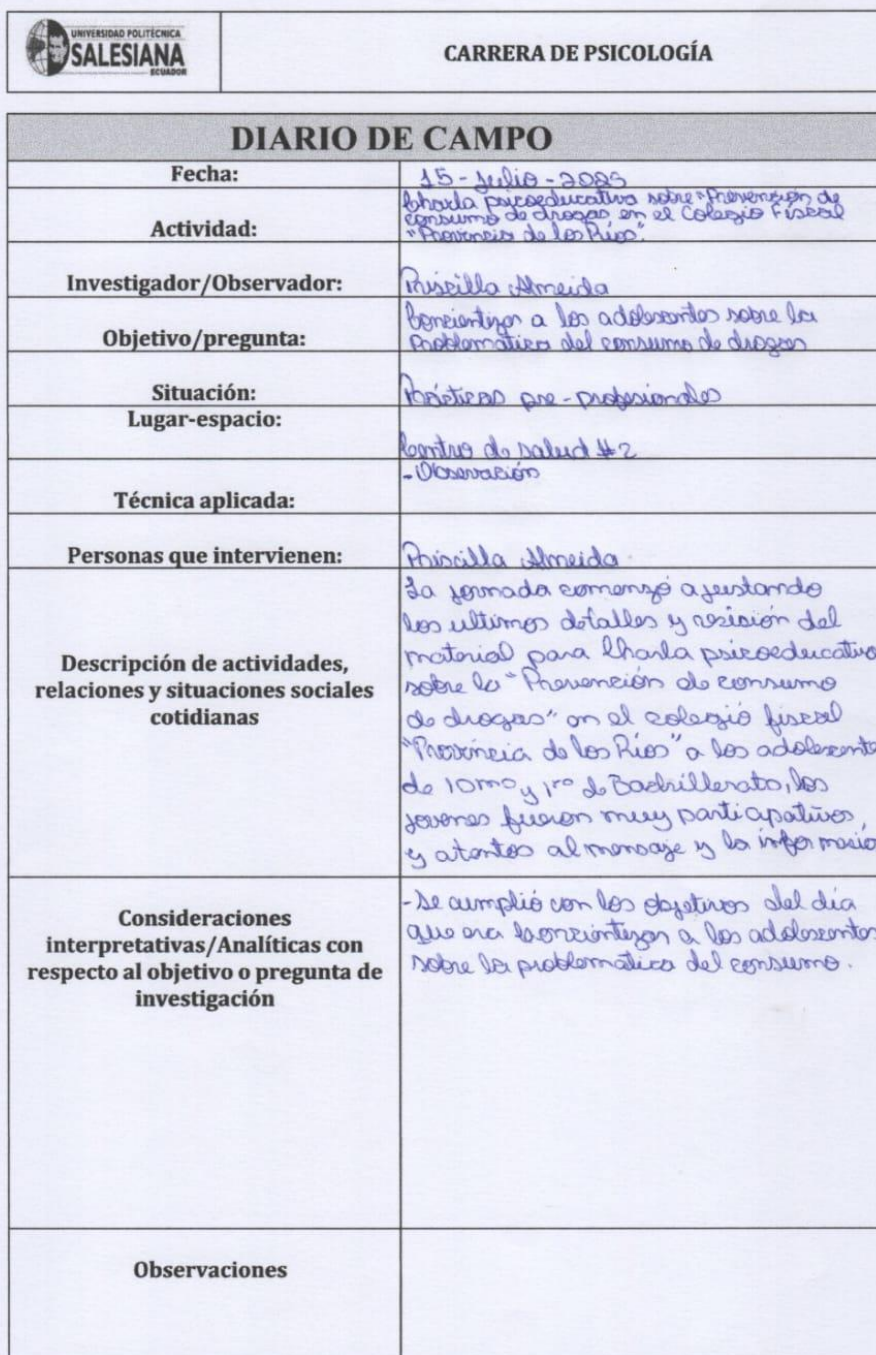 UNIVERSIDAD POLITÉCNICA
SALESIANA
ECUADOR
CARRERA DE PSICOLOGÍA
DIARIO DE CAMPO
Fecha:
15-julio-2025
Actividad:
Charla psicoeducativa sobre "Prevención de
consumo de drogas en el Colegio Fiscal
"Provincia de los Ríos".
Investigador/Observador:
Priscilla Almeida
Objetivo/pregunta:
Concientizar a los adolescentes sobre la
Problemática del consumo de drogas
Situación:
Prácticas pre-profesionales
Lugar-espacio:
Centro de salud #2
Técnica aplicada:
-Observación
Personas que intervienen:
Priscilla Almeida
Descripción de actividades,
relaciones y situaciones sociales
cotidianas
La jornada comenzó ajustando
los ultimos detalles y revisión del
material para Charla psicoeducativa
sobre la "Prevención de consumo
de drogas" en el colegio fiscal
"Provincia de los Ríos" a los adolescente
de 10mo y 1ro de Bachillerato, los
jovenes fueron muy participativos
y atentos al mensaje y la informació
Consideraciones
interpretativas/Analíticas con
respecto al objetivo o pregunta de
investigación
-Se cumplió con los objetivos del día
que era concientizar a los adolescentes
sobre la problemática del consumo.
Observaciones